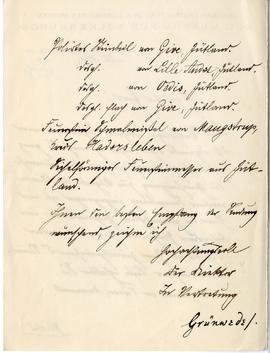 Poliertes Steinbeil von Give, Jütland.
desgl. von Lille Andst, Jütland.
desgl. von Ødis, Jütland.
desgl. flach von Give, Jütland.
Feuerstein Schmalmeißel von Maugstrup,
Kreis Hadersleben
Sichelförmiges Feuersteinmesser aus Jüt-
land.
Ihnen den besten Empfang der Sendung
wünschend, zeichne ich
Hochachtungsvoll
Der Direktor
In Vertretung
Grünwedel.